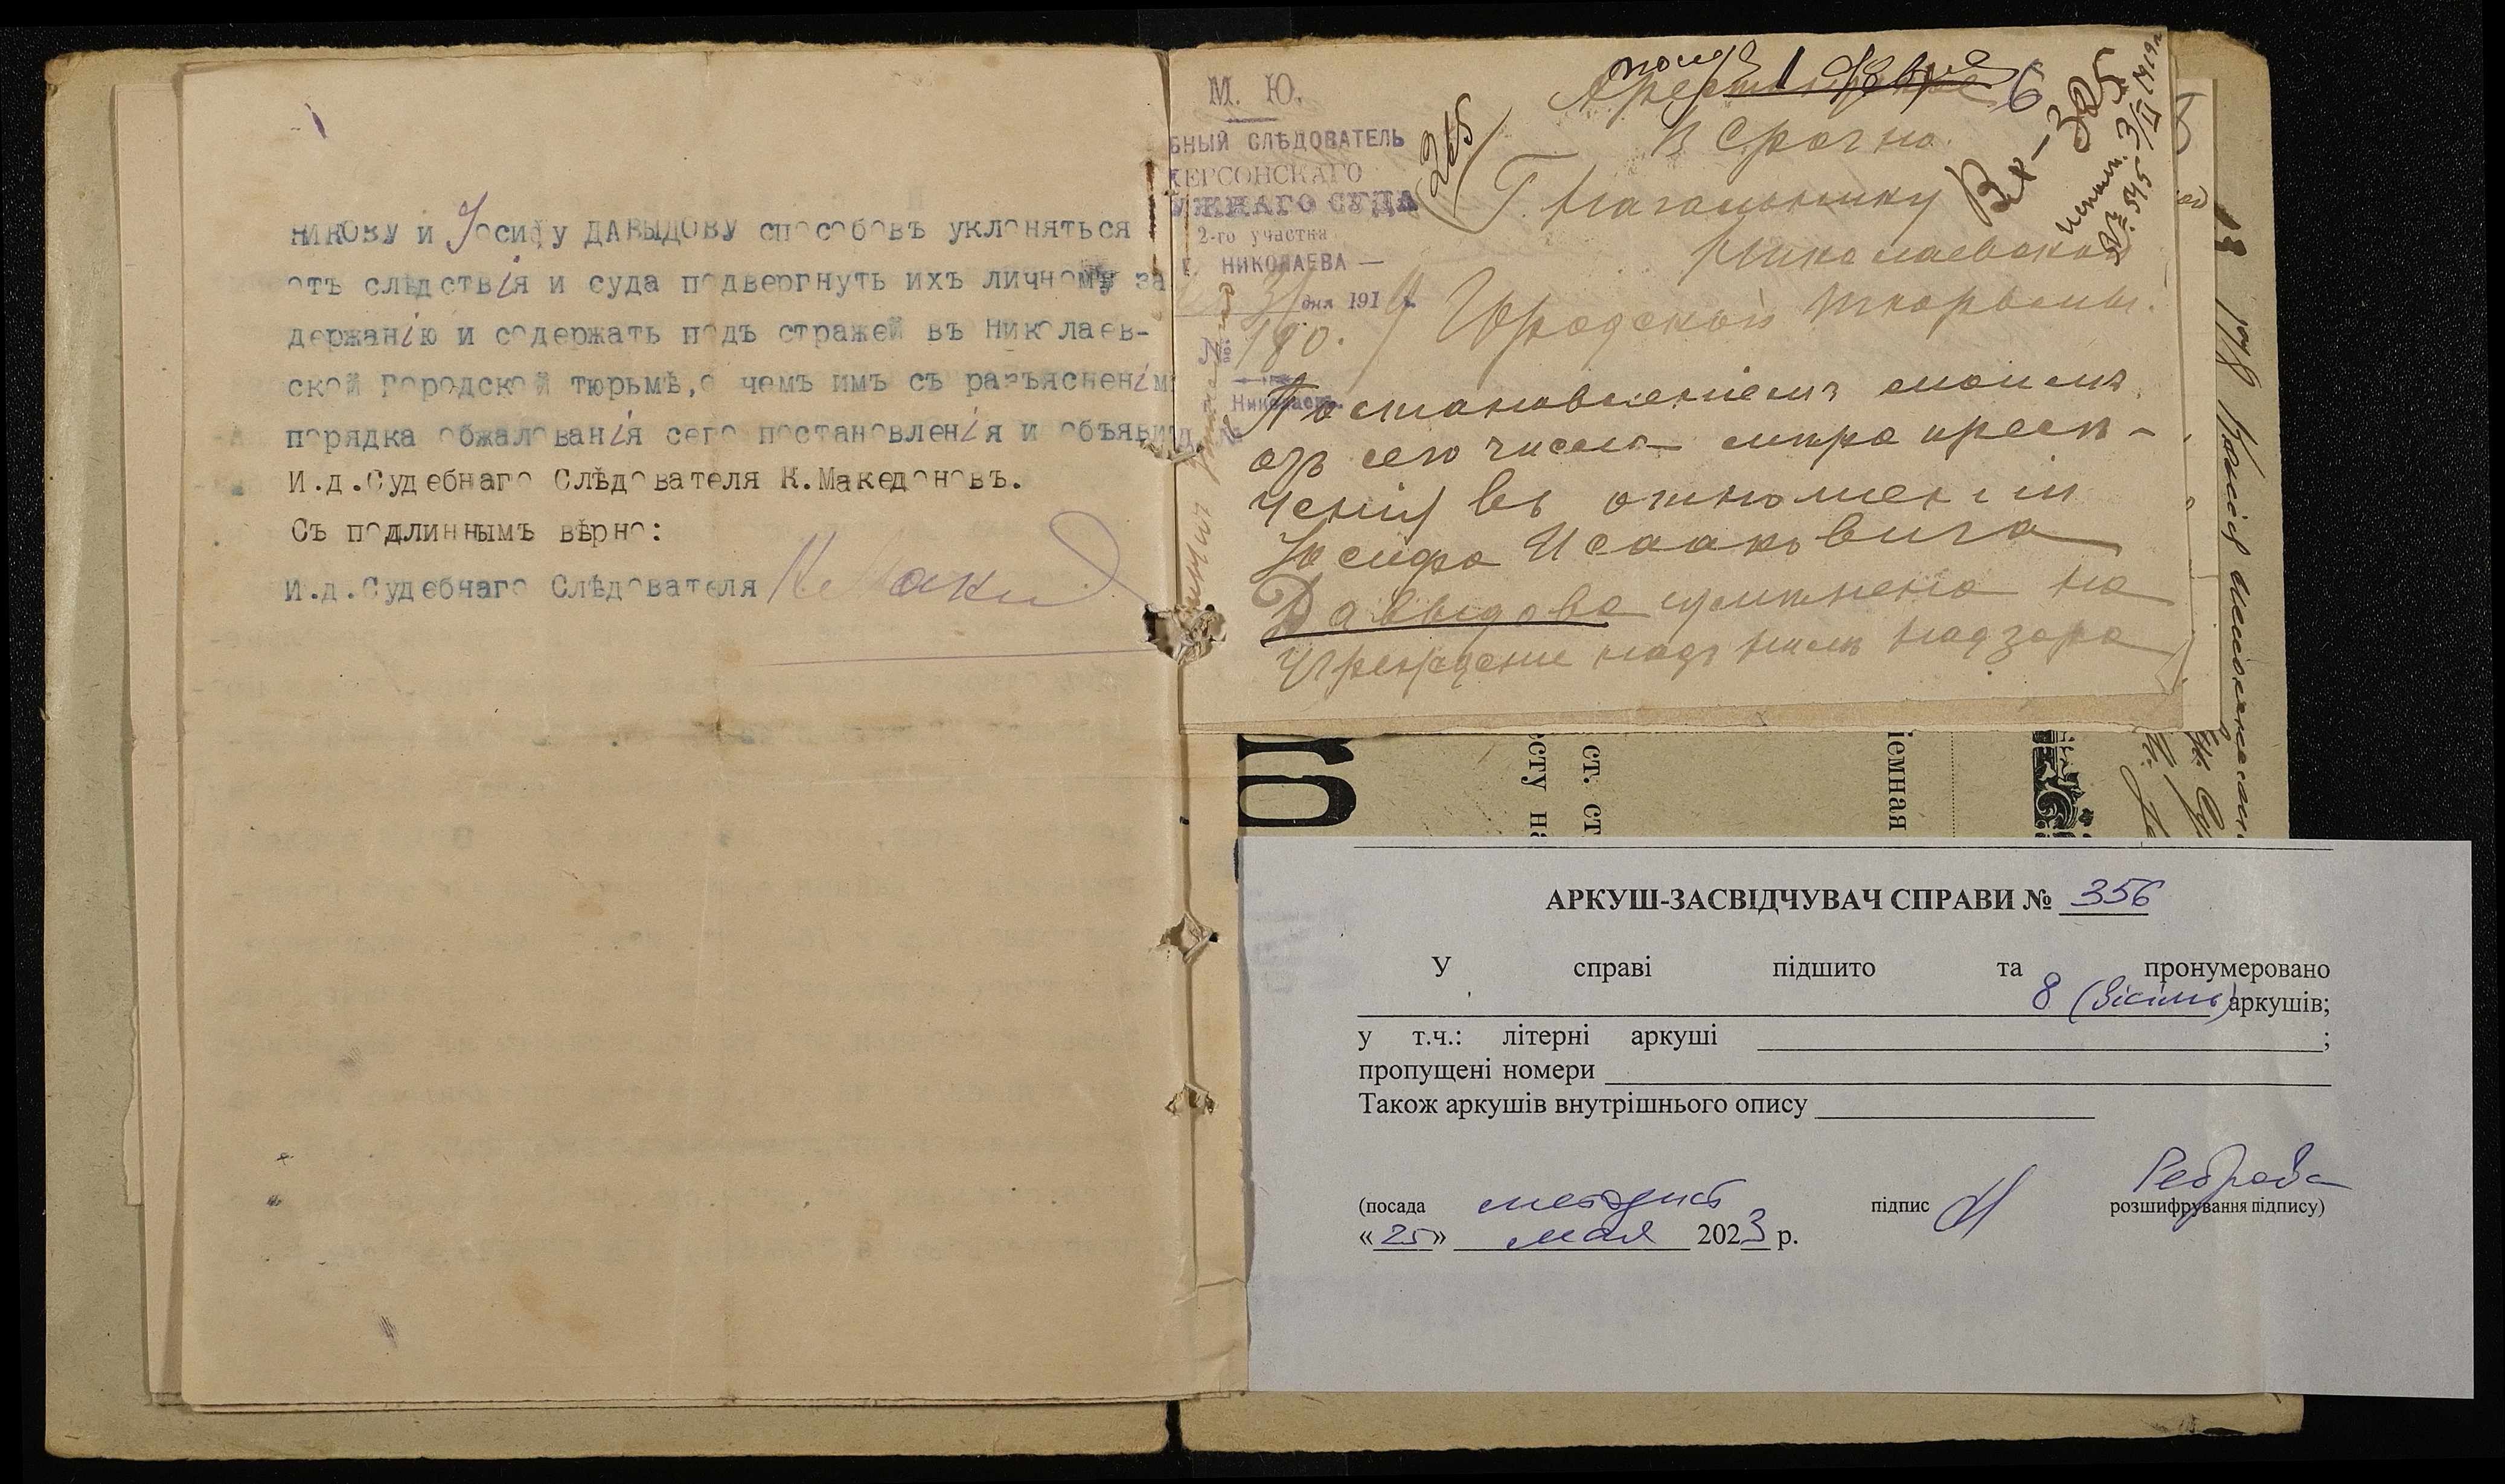 НИКОВУ и Іосифу ДАВЫДОВУ способовъ уклоняться
отъ слѣдствія и суда подвергнуть ихъ личному за
держанію и содержать подъ стражей въ Николаев-
ской Городской тюрьмѣ,о чемъ имъ съ разъясненіем
порядка обжалованія сего постановленія и объявить
И.д.Судебнаго Слѣдователя К.Македоновъ.
Съ подлиннымъ вѣрно:
И.д.Судебнаго Слѣдователя
М. Ю.
БНЫЙ СЛѢДОВАТЕЛЬ
ХЕРСОНСКАГО
УЖНАГО СУДА
2-го участка
Г. НИКОЛАЕВА —
31 дня 1919 г.
№ 180.
г. Николаевъ.
265
6
Срочно.
Вх – 325
Исполн. 3/II 1919 г.
№ 545
Г. Начальнику
Николаевской
Городской тюрьмы.
Постановленіемъ моимъ
отъ сего числа мѣра пресѣ-
ченія въ отношеніи
Іосифа Исааковича
Давыдова измѣнена на
учрежденіе надъ нимъ надзора
сту на
ст. ст
іемная
АРКУШ-ЗАСВІДЧУВАЧ СПРАВИ № 356
У справі підшито та пронумеровано
8 (вісім) аркушів;
у т.ч.: літерні аркуші ;
пропущені номери
Також аркушів внутрішнього опису
(посада методист підпис розшифрування підпису)
«25» мая 2023 р.